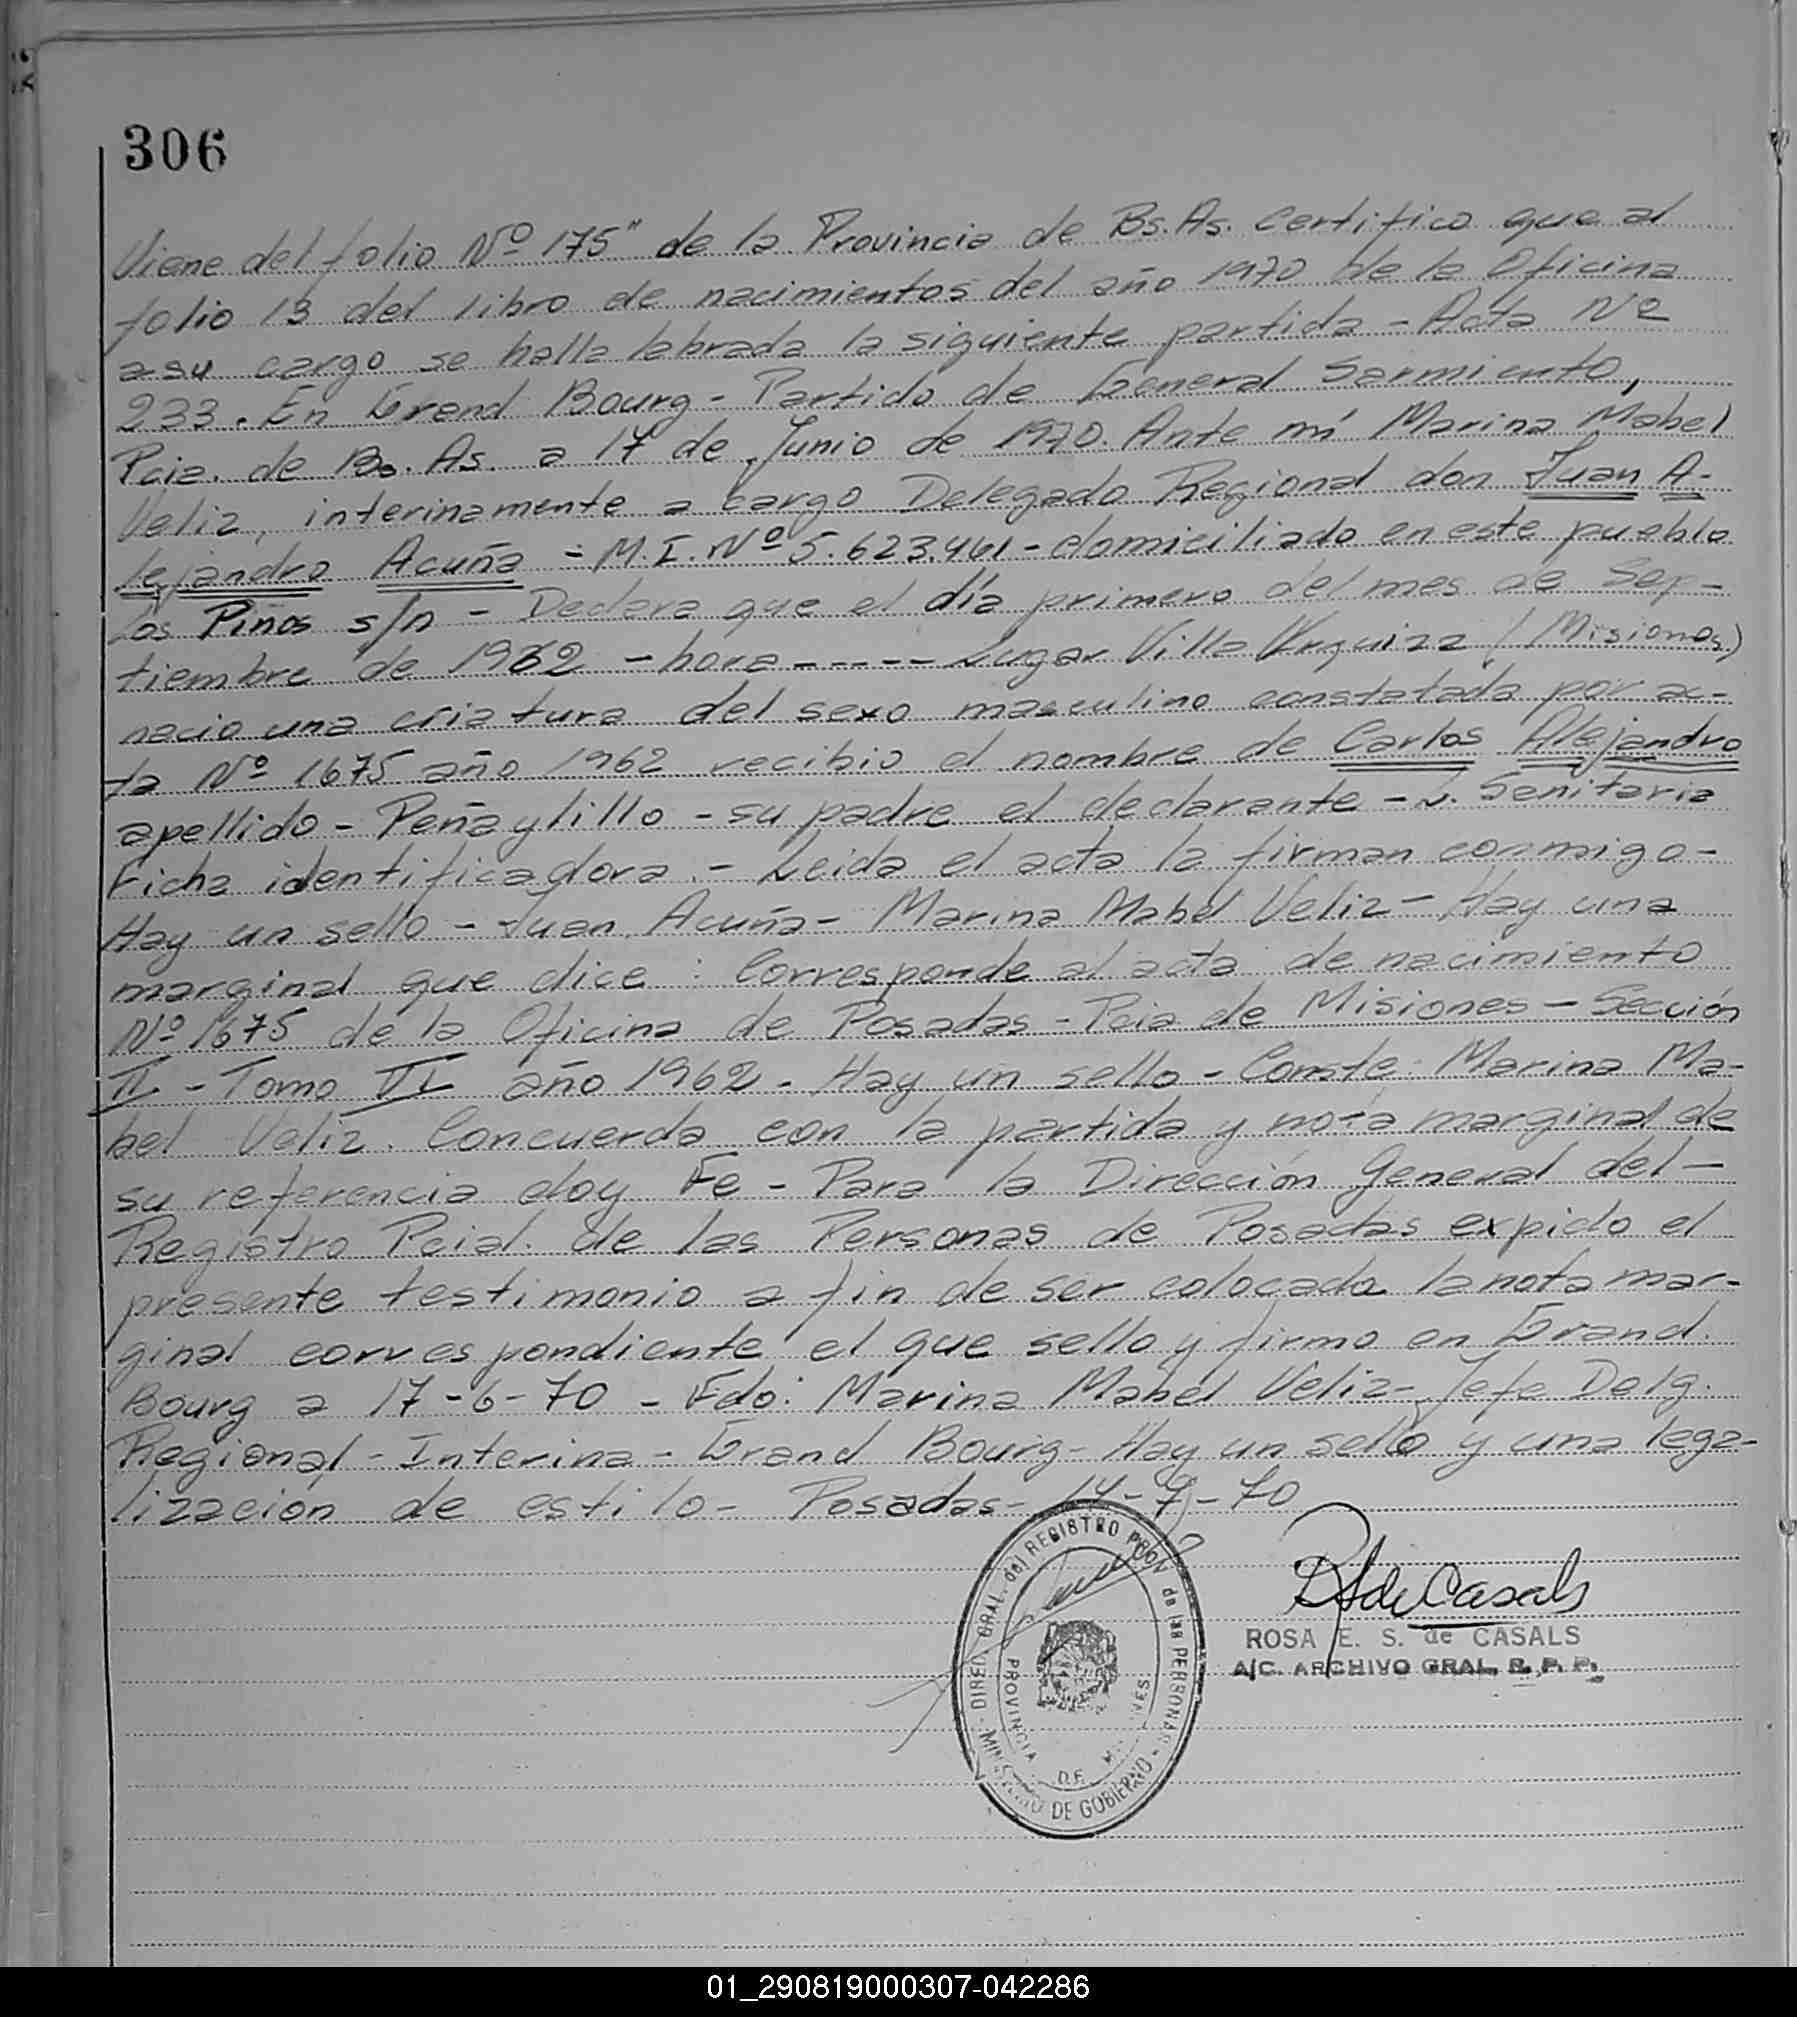 306
Viene del folio Nº 175" de la Provincia de Bs. As. Certifico que al
folio 13 del libro de nacimientos del año 1970 de la Oficina
a su cargo se halla labrada la siguiente partida - Acta Nº
233. En Grand Bourg - Partido de General Sarmiento,
Pcia. de Bs. As. a 17 de Junio de 1970. Ante mí Marina Mabel
Veliz, interinamente a cargo Delegado Regional don Juan A-
lejandro Acuña - M.I. Nº 5.623.461 - domiciliado en este pueblo
Los Pinos s/n - Declara que el día primero del mes de Sep-
tiembre de 1962 - hora ----- Lugar Villa Urquiza (Misiones)
nacio una criatura del sexo masculino constatada por ac-
ta Nº 1675 año 1962 recibio el nombre de Carlos Alejandro
apellido - Peñaylillo - su padre el declarante - L. Sanitaria
Ficha identificadora. - Leida el acta la firman conmigo -
Hay un sello - Juan Acuña - Marina Mabel Veliz - Hay una
marginal que dice : Corresponde al acta de nacimiento
Nº 1675 de la Oficina de Posadas - Pcia de Misiones - Sección
II - Tomo VI año 1962 - Hay un sello - Conste. Marina Ma-
bel Veliz. Concuerda con la partida y nota marginal de
su referencia doy Fe - Para la Dirección General del -
Registro Pcial. de las Personas de Posadas expido el
presente testimonio a fin de ser colocada la nota mar-
ginal correspondiente el que sello y firmo en Grand
Bourg a 17-6-70 - Fdo: Marina Mabel Veliz - Jefe Delg.
Regional - Interina - Grand Bourg - Hay un sello y una lega-
lización de estilo - Posadas - 14-9-70
DIREC. GRAL. del REGISTRO PCIAL de las PERSONAS
PROVINCIA DE MISIONES
MINISTERIO DE GOBIERNO
R S de Casals
ROSA E. S. de CASALS
A/C. ARCHIVO GRAL. R. P. P.
01_290819000307-042286